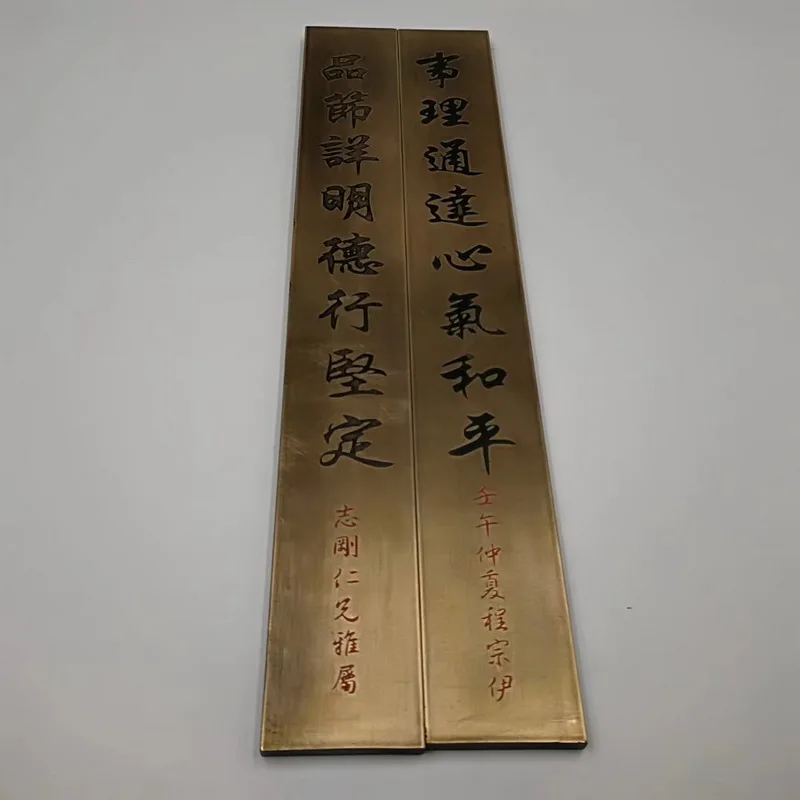 事理通達心氣和平
壬午仲夏程宗伊
品節詳明德行堅定
志剛仁兄雅屬